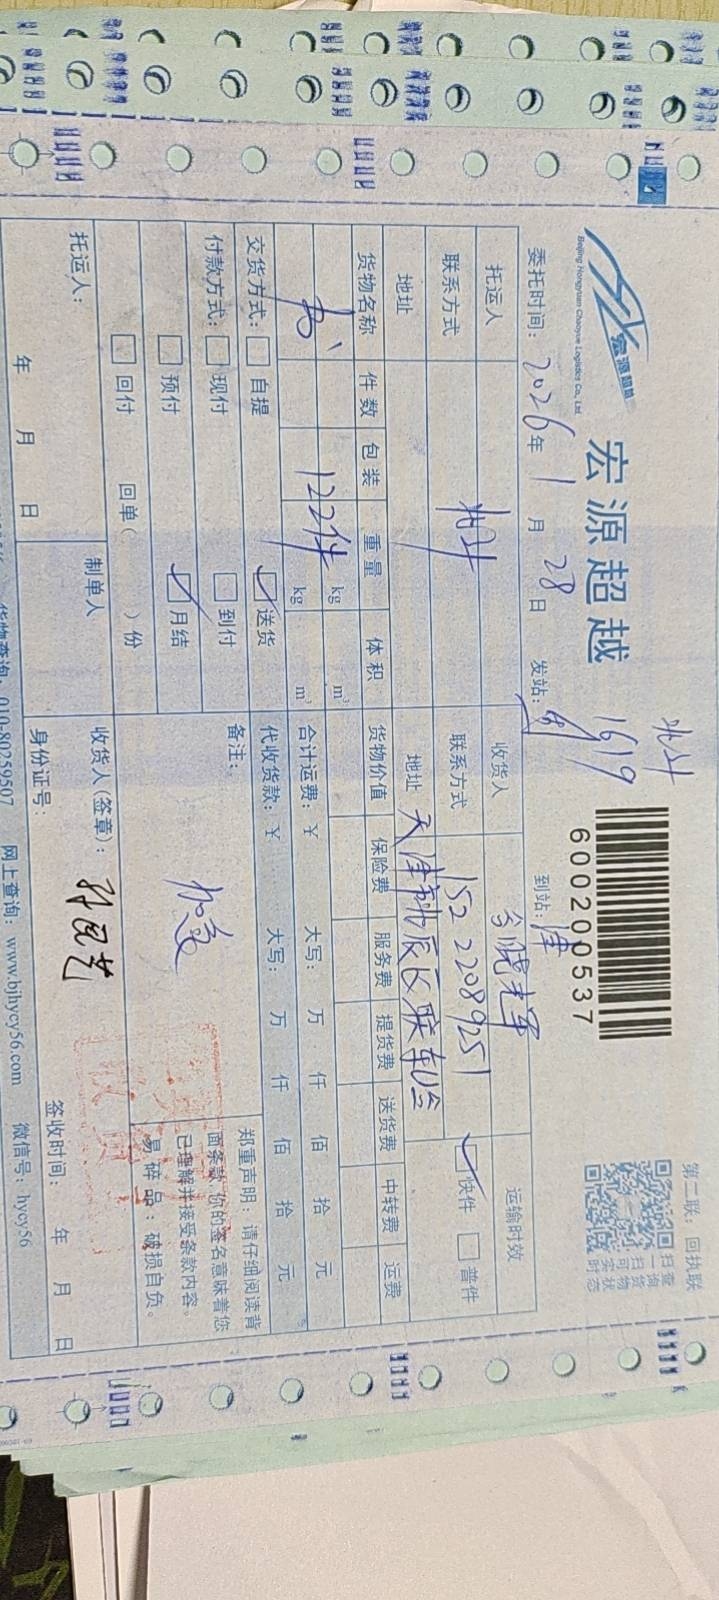 第二联：回执联
北斗
1619
宏源超越
宏源超越
Beijing Hongyuan Chaoyue Logistics Co., Ltd.
600200537
扫一扫可实时
查询货物状态
委托时间：2026年1月28日
发站：
到站：津
托运人
收货人
运输时效
联系方式
北斗
联系方式
152 2208 9251
快件
普件
地址
地址
货物名称
件数
包装
重量
体积
货物价值
保险费
服务费
提货费
送货费
中转费
运费
书
122件
kg
m³
kg
m³
合计运费：￥
大写：
万
仟
佰
拾
元
交货方式：
自提
送货
代收货款：￥
大写：
万
仟
佰
拾
元
付款方式：
现付
到付
备注：
加急
预付
月结
回付
回单（ ）份
郑重声明：请仔细阅读背
面条款，你的签名意味着您
已理解并接受条款内容。
易碎品：破损自负。
托运人：
制单人
收货人（签章）：
年 月 日
身份证号：
签收时间：
年 月 日
货物查询：010-80259507
网上查询：www.bjhycy56.com
微信号：hycy56